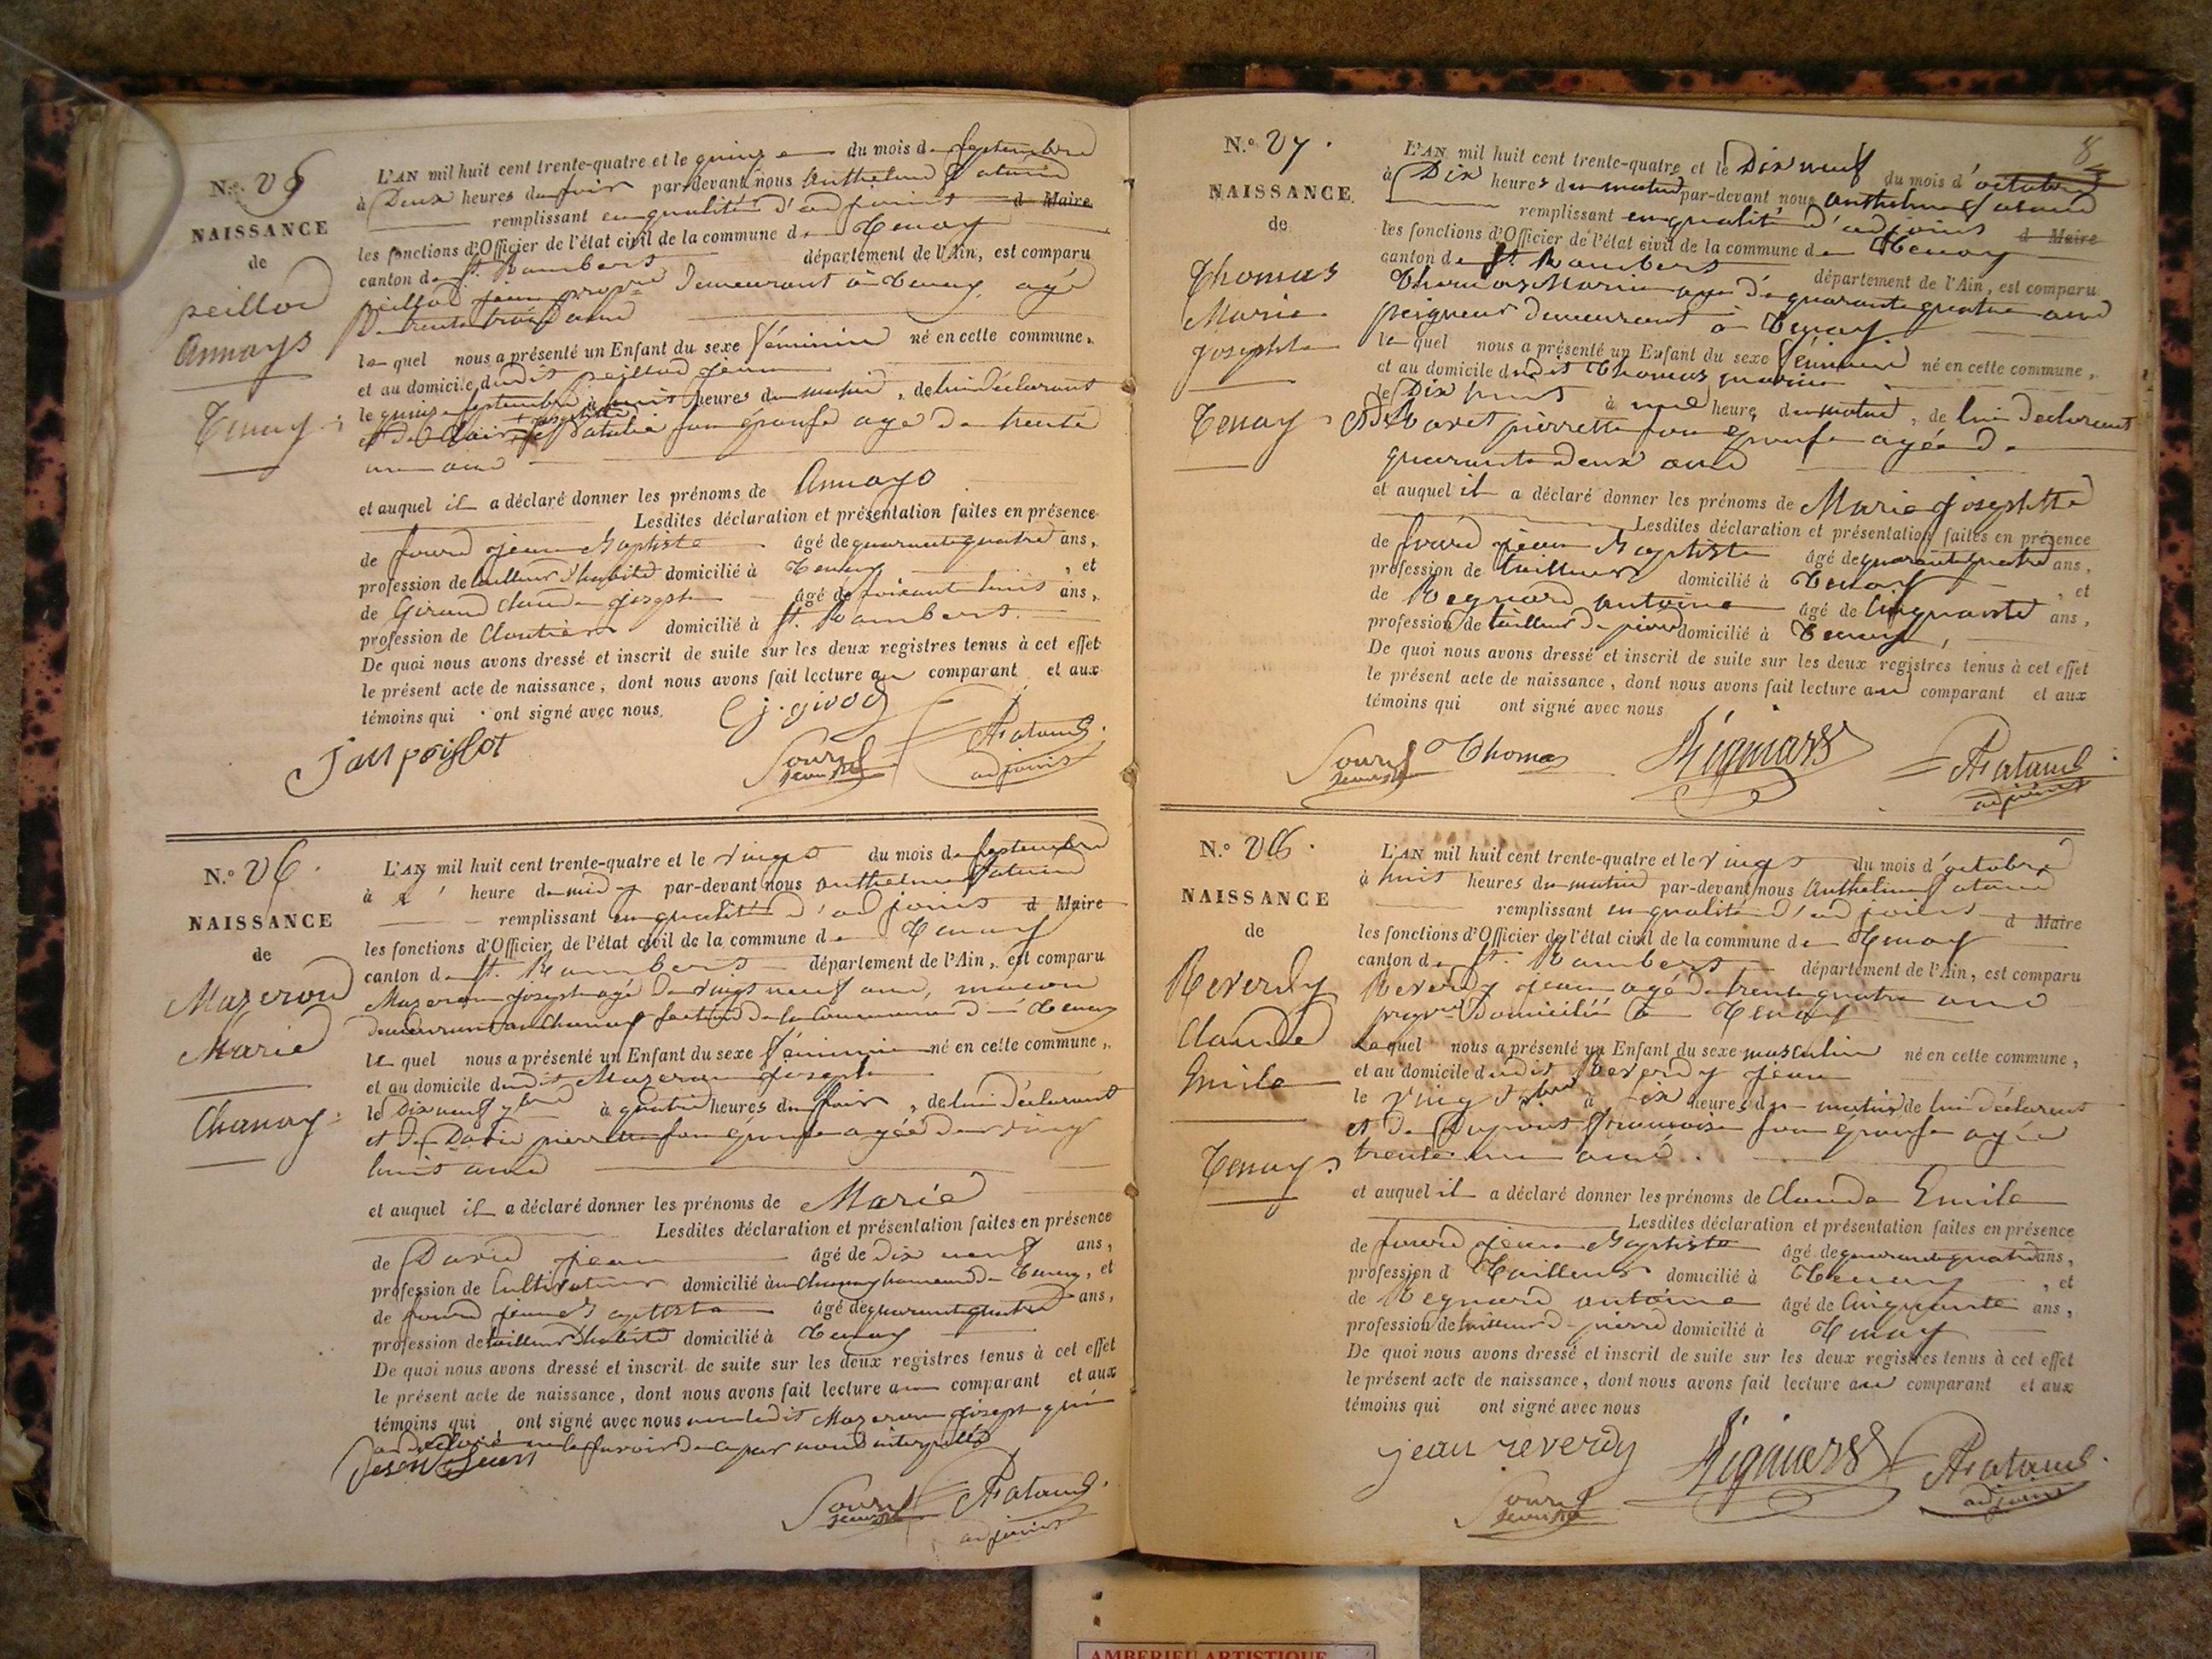 N.º 25
NAISSANCE
de
peillod
Annays
Tenay
L'AN mil huit cent trente-quatre et le quinze du mois de septembre
à Deux heures du soir par-devant nous Anthelme Pataud
remplissant en qualité d'adjoint d Maire
les fonctions d'Officier de l'état civil de la commune de Tenay
canton de St. Rambert département de l'Ain, est comparu
peillod jean propre demeurant à Tenay, agé
De trente trois ans
le quel nous a présenté un Enfant du sexe féminin né en cette commune,
et au domicile dudit peillod jean
le quinze septembre à heures du matin, de lui déclarant
et de Clair Josephte Natalie son épouse agé de trente
un ans
et auquel il a déclaré donner les prénoms de Annays
Lesdites déclaration et présentation faites en présence
de fourd jean Baptiste âgé de quarante quatre ans,
profession de tailleur d'habits domicilié à Tenay, et
de Giraud Claude joseph âgé de soixante huit ans,
profession de Cloutier domicilié à St. Rambert.
De quoi nous avons dressé et inscrit de suite sur les deux registres tenus à cet effet
le présent acte de naissance, dont nous avons fait lecture au comparant et aux
témoins qui ont signé avec nous
Pataud
adjoint
N.º 26
NAISSANCE
de
Mazerond
Marie
Chanay
L'AN mil huit cent trente-quatre et le vingt du mois de septembre
à heure de midy par-devant nous Anthelme Pataud
remplissant en qualité d'adjoint d Maire
les fonctions d'Officier de l'état civil de la commune de Tenay
canton de St. Rambert département de l'Ain, est comparu
Mazeron joseph agé De vingt neuf ans, macon
demeurant au Chanay section de la Commune de Tenay
le quel nous a présenté un Enfant du sexe féminin né en cette commune,
et au domicile dudit Mazeron joseph
le Dix neuf 7bre à quatre heures du soir, de lui déclarant
et De David pierrette son épouse agée de vingt
huit ans
et auquel il a déclaré donner les prénoms de Marie
Lesdites déclaration et présentation faites en présence
de David jean âgé de dix neuf ans,
profession de Cultivateur domicilié au chanay hameau de Tenay, et
de fourd jean Baptiste âgé de quarante quatre ans,
profession de tailleur d'habits domicilié à Tenay
De quoi nous avons dressé et inscrit de suite sur les deux registres tenus à cet effet
le présent acte de naissance, dont nous avons fait lecture au comparant et aux
témoins qui ont signé avec nous non ledit Mazeron joseph qui
a déclaré ne le savoir de ce par nous interpellé
Pataud
adjoint
8
N.º 27
NAISSANCE
de
Thomas
Marie
josephte
Tenay
L'AN mil huit cent trente-quatre et le Dix neuf du mois d'octobre
à Dix heures du matin par-devant nous Anthelme Pataud
remplissant en qualité d'adjoint d Maire
les fonctions d'Officier de l'état civil de la commune de Tenay
canton de St. Rambert département de l'Ain, est comparu
Thomas Marin agé de quarante quatre ans
peigneur demeurant à Tenay
le quel nous a présenté un Enfant du sexe féminin né en cette commune,
et au domicile dudit Thomas marin
le Dix huit à une heure du matin, de lui declarant
et de Boret pierrette son epouse agée de
quarante deux ans
et auquel il a déclaré donner les prénoms de Marie josephtte
Lesdites déclaration et présentation faites en présence
de fourd jean Baptiste âgé de quarante quatre ans,
profession de tailleur domicilié à Tenay, et
de Regnard antoine âgé de Cinquante ans,
profession de tailleur de pierre domicilié à Tenay,
De quoi nous avons dressé et inscrit de suite sur les deux registres tenus à cet effet
le présent acte de naissance, dont nous avons fait lecture au comparant et aux
témoins qui ont signé avec nous
Thomas
Pataud
adjoint
N.º 28
NAISSANCE
de
Reverdy
Claude
Emile
Tenay
L'AN mil huit cent trente-quatre et le vingt du mois d'octobre
à huit heures du matin par-devant nous Anthelme Pataud
remplissant en qualité d'adjoint d Maire
les fonctions d'Officier de l'état civil de la commune de Tenay
canton de St. Rambert département de l'Ain, est comparu
Reverdy jean agé de trente quatre ans
domicilié à Tenay
Lequel nous a présenté un Enfant du sexe masculin né en cette commune,
et au domicile dudit Reverdy jean
le vingt 8bre à six heures du matin de lui déclarant
et de Dupont francoise son epouse agée
trente un ans.
et auquel il a déclaré donner les prénoms de Claude Emile
Lesdites déclaration et présentation faites en présence
de fourd jean Baptiste âgé de quarante quatre ans,
profession d Tailleur domicilié à Tenay, et
de Regnard antoine âgé de Cinquante ans,
profession de tailleur de pierre domicilié à Tenay
De quoi nous avons dressé et inscrit de suite sur les deux registres tenus à cet effet
le présent acte de naissance, dont nous avons fait lecture au comparant et aux
témoins qui ont signé avec nous
jean reverdy
Pataud
adjoint
AMBERIEU ARTISTIQUE